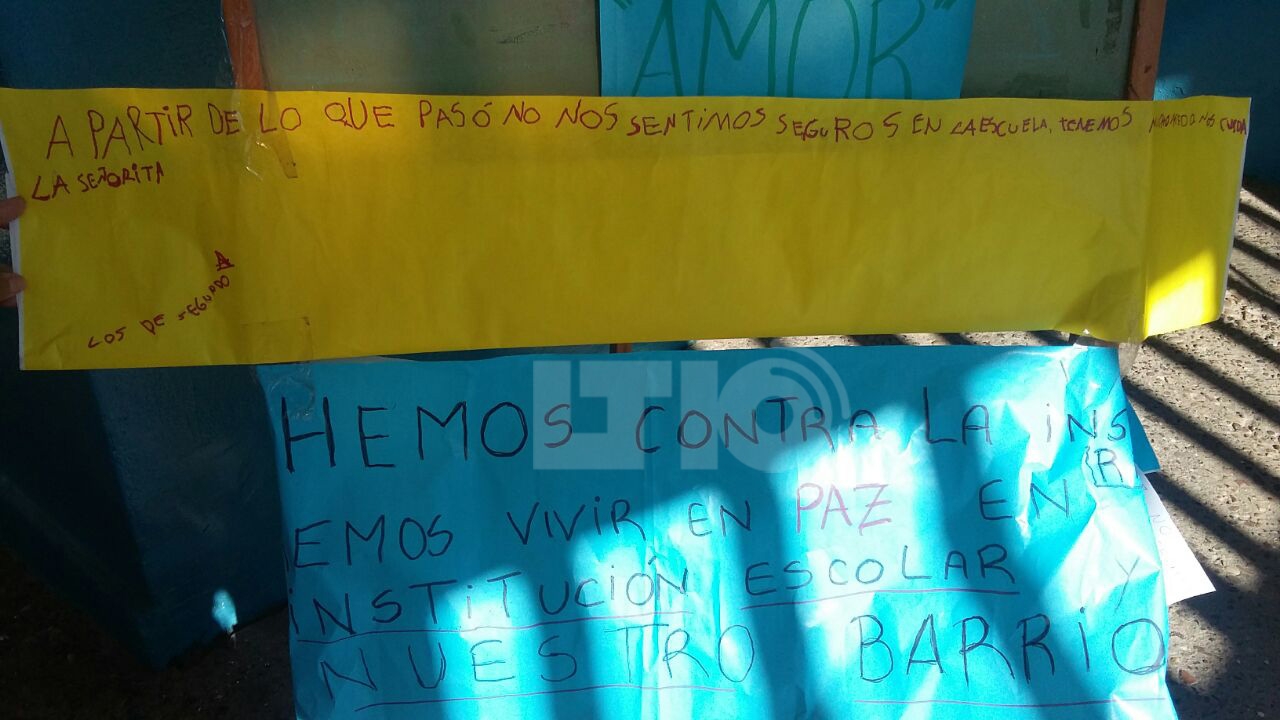 "AMOR"
A PARTIR DE LO QUE PASÓ NO NOS SENTIMOS SEGUROS EN LA ESCUELA. TENEMOS NOS CUIDA
LA SEÑORITA
LOS DE SEGUNDO A
HEMOS CONTRA LA INS
EMOS VIVIR EN PAZ EN
INSTITUCIÓN ESCOLAR Y
NUESTRO BARRIO
LTIO